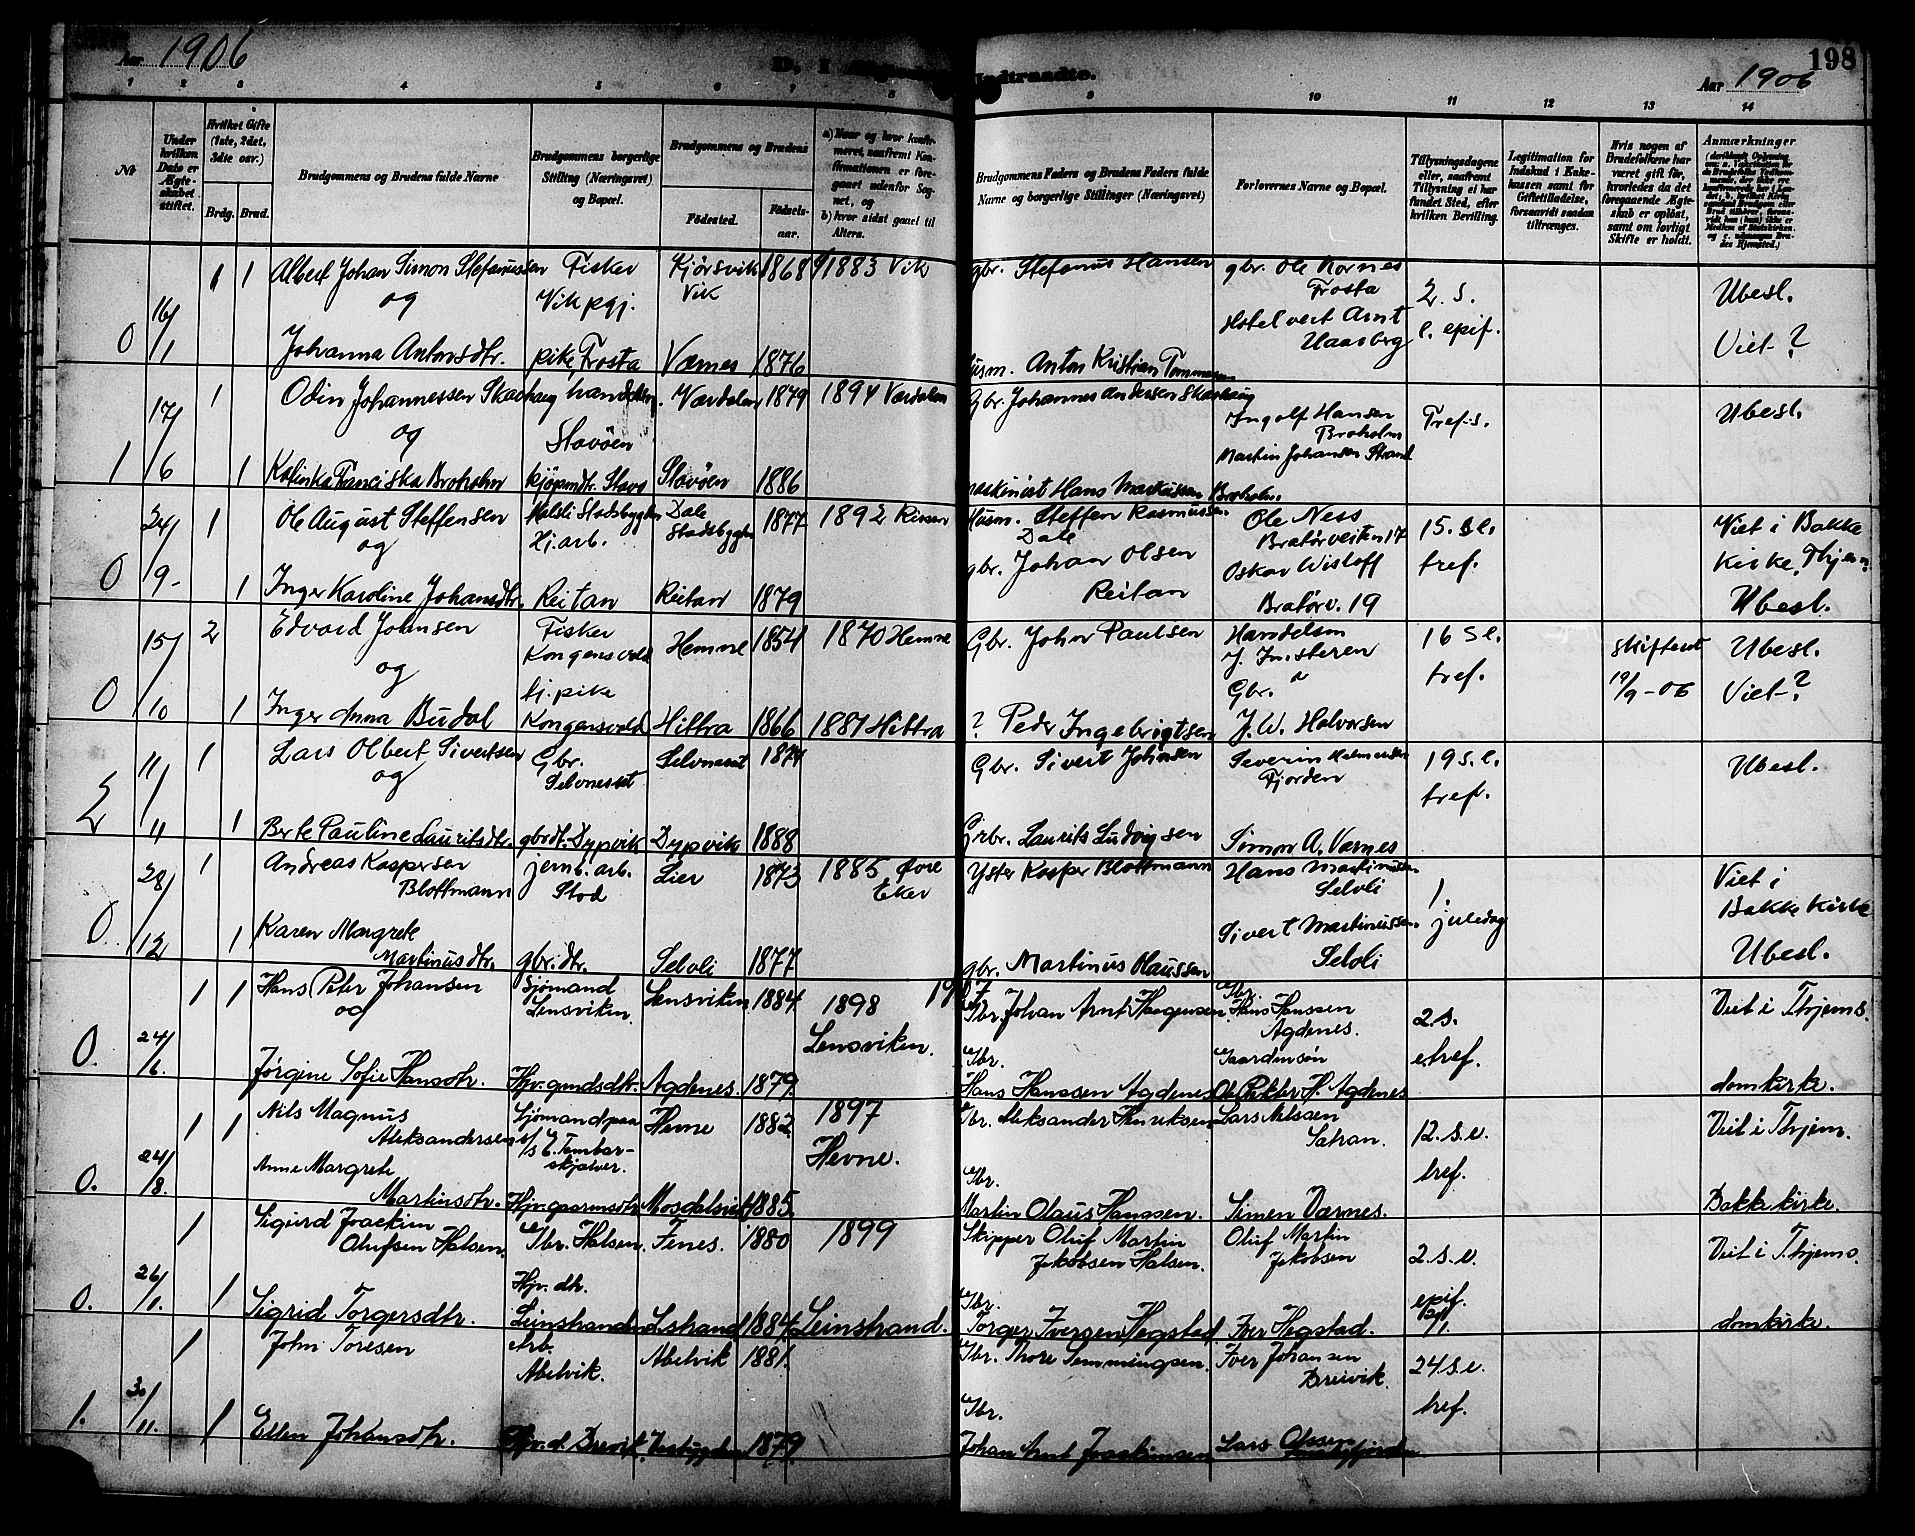 Aar 1906
198
Aar 1906
1 2 3 4 5 6 7 8 9 10 11 12 13 14
No
Under hvilken Dato er Ægteskabet stiftet.
Hvilket Gifte (1ste, 2det, 3die osv.)
Brdg. Brud.
Brudgommens og Brudens fulde Navne
Brudgommens borgerlige Stilling (Næringsvei) og Bopæl.
Brudgommens og Brudens
Fødested.
Fødselsaar.
a) Naar og hvor konfirmeret, saafremt Konfirmationen er foregaaet udenfor Sognet, og
b) hvor sidst gaaet til Alters.
Brudgommens Faders og Brudens Faders fulde Navne og borgerlige Stillinger (Næringsvei)
Forlovernes Navne og Bopæl.
Tillysningsdagene eller, saafremt Tillysning ei har fundet Sted, efter hvilken Bevilling.
Legitimation for Indskud i Enkekassen samt for Giftetilladelse, forsaavidt saadan tiltrænges.
Hvis nogen af Brudefolkene har været gift før, hvorledes da det foregaaende Ægteskab er opløst, samt om lovligt Skifte er holdt.
Anmærkninger
0 16/1 1 1 Albert Johan Simon Stefanussen Fisker Kjørsvik 1868 1883 Vik gbr. Stefanus Hansen gbr. Ole Kornes
og Vik pgj. Vik Frosta 2. s. Ubesl.
Hotelvert Arnt e. epif.
Johanna Antonsdtr. pike, Frosta Værnes 1876 husm. Anton Kristian Tommesen Haasberg Viet-?
1 17/6 1 Odin Johannessen Skavhaug Værdalen 1879 1894 Værdalen Gbr. Johannes Andersen Skavhaug Ingolf Hansen Tref. s. Ubesl.
og Stavøen Broholm
Martin Johansen Strand
1 Kalinka Franciska Broholm Stavøen 1886 maskinist Hans Markussen Broholm.
0 24/9- 1 Ole August Steffensen Stadsbygden Dale 1877 1892 Rissen Husm. Steffen Rasmussen Ole Ness 15. s.e. Viet i Bakke
og tj.arb. Stadsbygden Dale Bratørveiten 17 Kirke, Thjem
gbr. Johan Olsen Oskar Wisloff tref.
1 Inger Karoline Johansdtr. Reitan Reitan 1879 Reitan Bratørv. 19 Ubesl.
0 15/10 2 Edvard Johnsen Fisker Hemne 1854 1870 Hemne Gbr. John Paulsen Handelsm 16 S e. skifteatt Ubesl.
og Kongensvold tref. 19/9-06 Viet-?
tj. pike Gbr.
1 Inger Anna Budal Kongensvold Hittra 1866 1881 Hittra ? Peder Ingebrigtsen J. W. Halvorsen
2 11/11 1 Lars Olbert Sivertsen Gbr. Selvneset 1874 Gbr. Sivert Johnsen Severin 19 s. e. Ubesl.
og Selvneset Fjorden tref.
1 Berte Pauline Lauritsdtr. gbrdt. Dypvik Dypvik 1888 Gbr. Laurits Ludvigsen Simon A. Værnes
0 28/12 1 Andreas Kaspersen jernb. arb. Lier 1873 1885 Øvre Yster Kasper Blottmann Hans Martinussen 1. Viet i
Blottmann Stod Eker Selvli juledag Bakke Kirke
1 Karen Margrete Sivert Martinussen
Martinusdtr. gbr.dtr. Selvli 1877 gbr. Martinus Olaussen Selvli Ubesl.
0. 24/6. 1 1 Hans Peter Johansen Sjømand Lensviken 1884 1898 Gbr. Johan Arnt Haagensen Gbr. Hans Hanssen 2. s. Viet i Thjems.
og Lensviken. Lensviken. Agdenes.
Gbr. Gaardmsøn e tref.
Jørgine Sofie Hansdtr. Agdenes. 1879. Hans Hanssen Agdenes Ole Petter H. Agdenes domkirke.
0. 24/8. 1 1 Nils Magnus Sjømand paa Hevne 1882. 1897 Gbr. Aleksander Henriksen Lars Nilssen 12. s. e. Viet i Thjem.
Aleksandersen s/s E. Tambar- Hevne. Sahan.
Anne Margrete skjælver. Gbr. tref.
Martinsdtr. 1885. Martin Olaus Hanssen. Simen Værnes. Bakke kirke.
0. 26/1. 1 Sigurd Joackim Gbr. Halsen. Fenes. 1880 1899 Skipper Oluf Martin Oluf Martin 2. s. e. Viet i Thjems.
Olufsen Halsen. Jakobsen Halsen. Jakobsen
Hjv. dtr. Gbr. epif.
1 Sigrid Torgersdtr. Leinstranden L.strand 1884. Leinstrand. Torger Iversen Hegstad. Iver Hegstad. domkirke.
1. 30/11. 1 John Toresen Arb. Abelvik 1881. Gbr. Thore Temmingsen. Iver Johansen 24 s. e.
Abelvik. Breivik.
Gbr. tref.
1 Ellen Johansdtr. Hjv. d. Breivik. 1879. Johan Arnt Joackimsen Lars Olssen